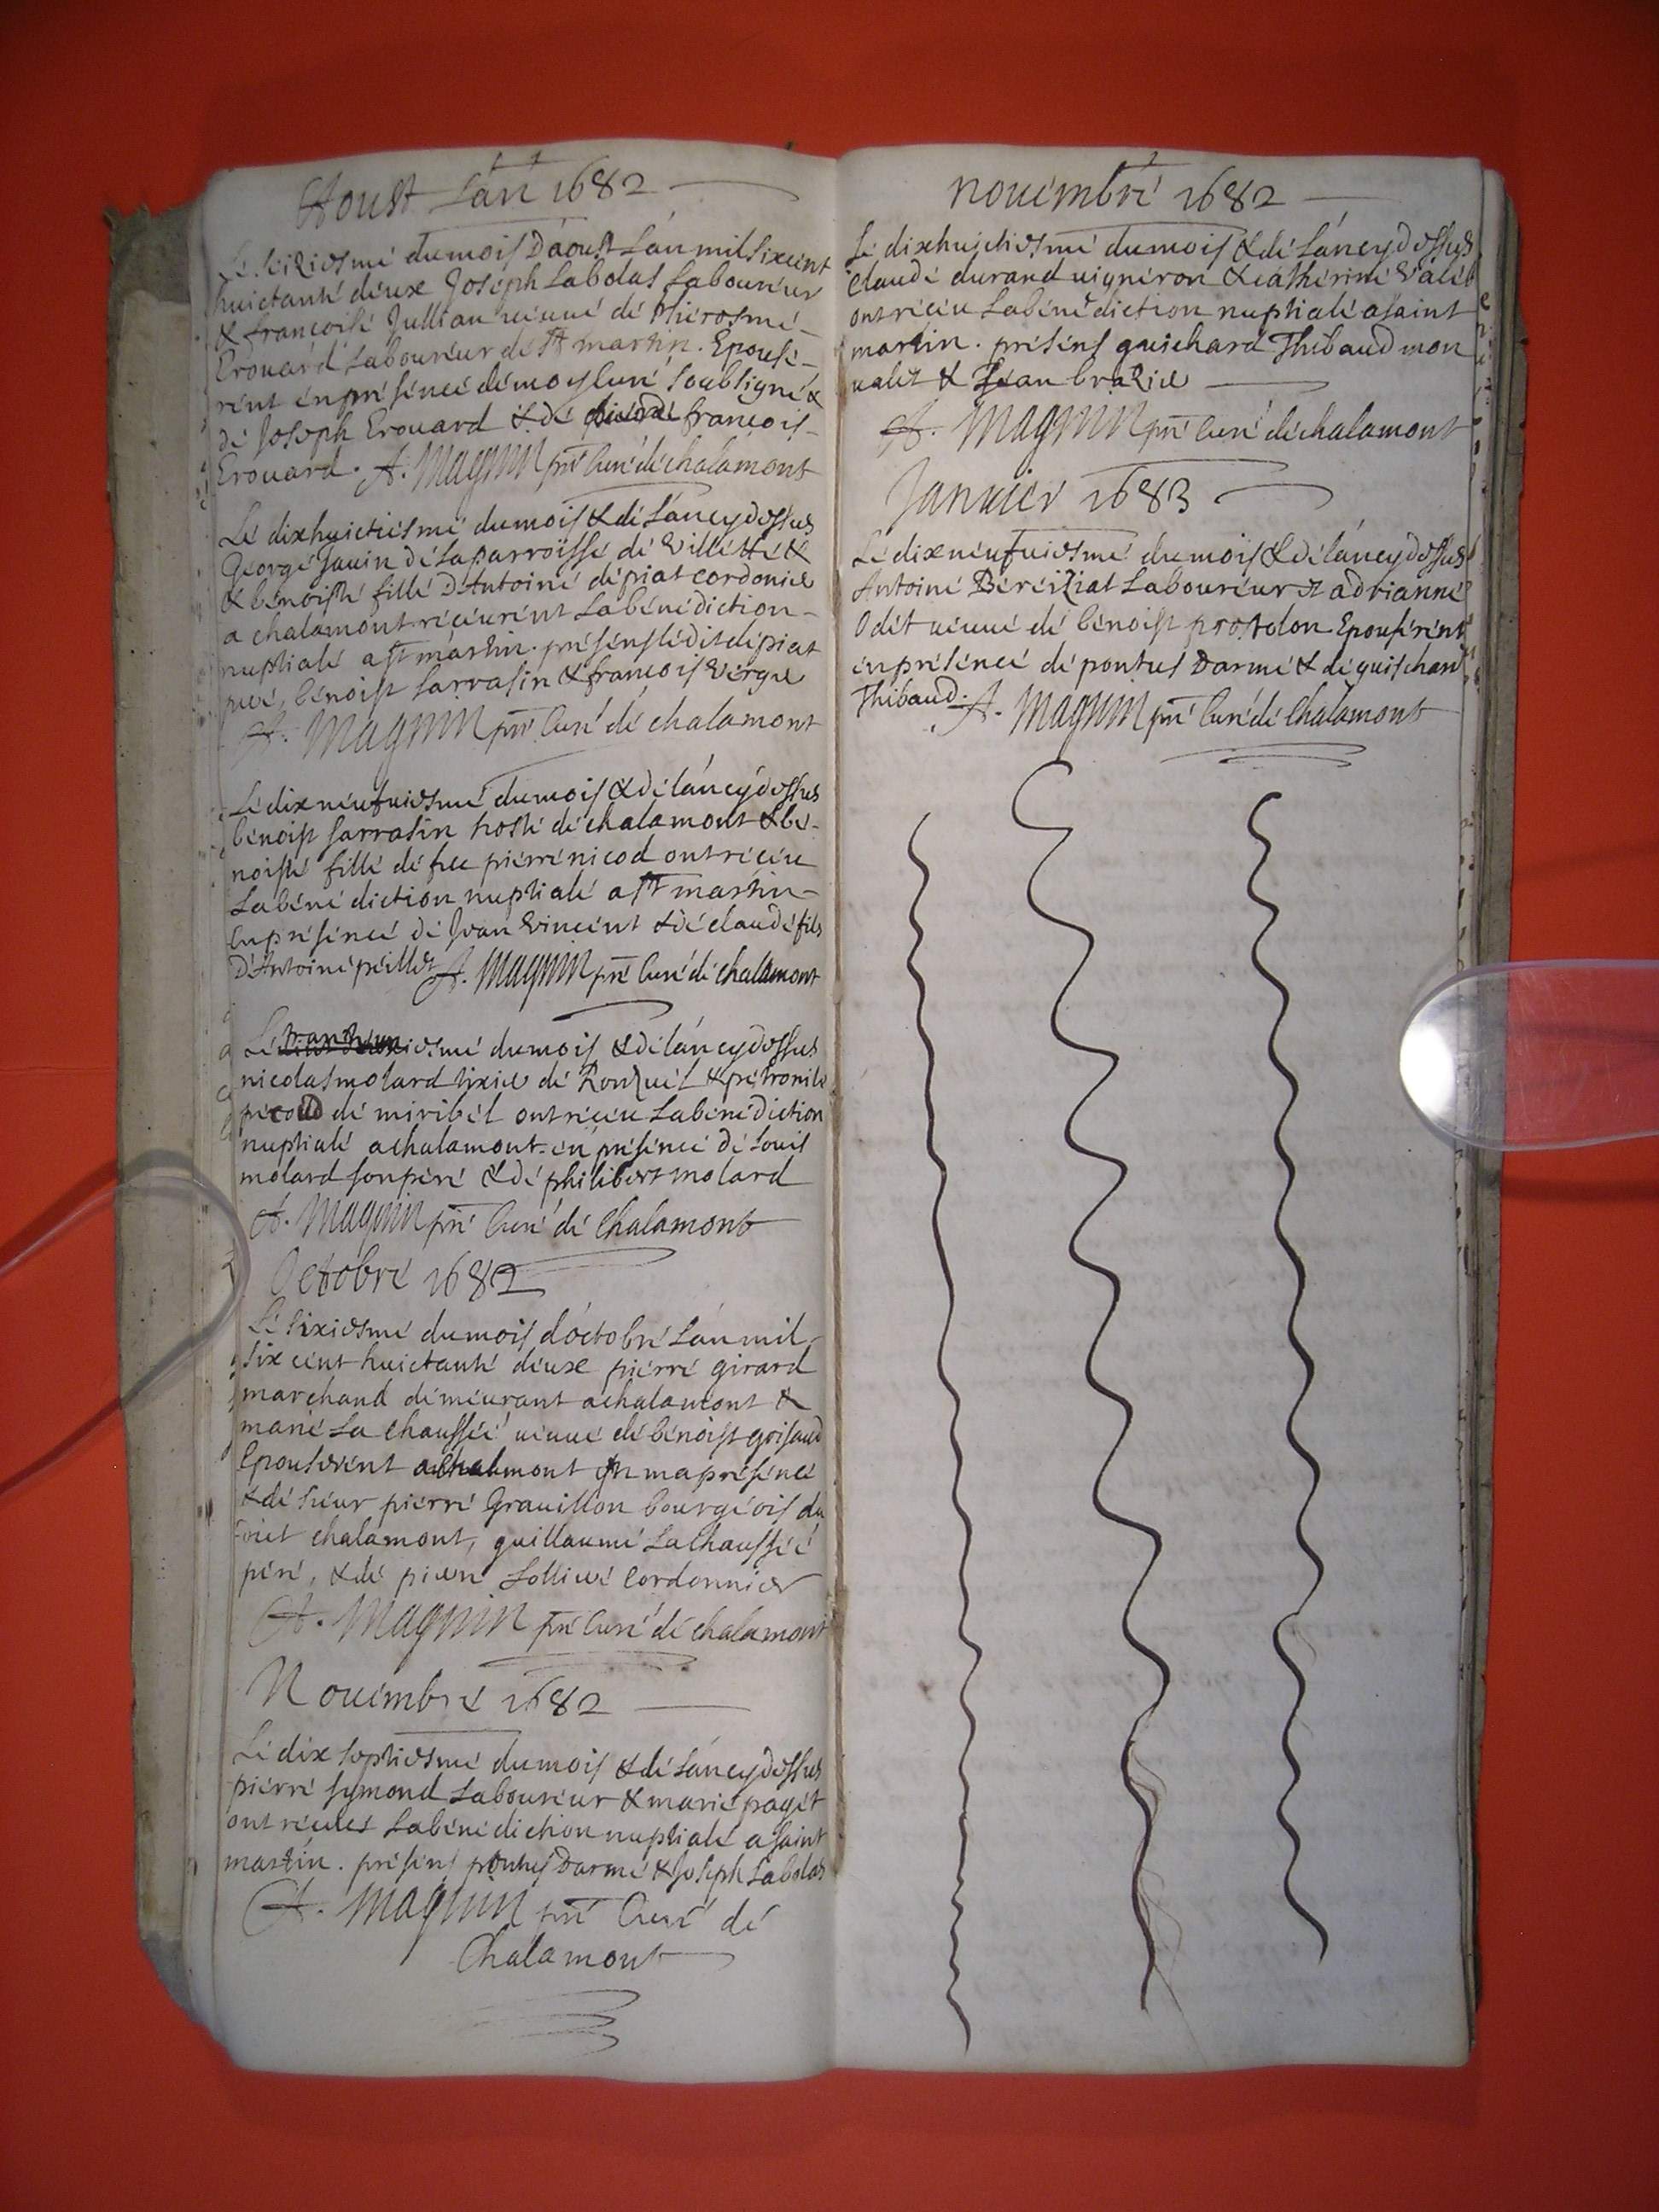 Aoust Lan 1682
Le seiziesme du mois Daoust Lan mil six cent
huictante deuxe Joseph Labolas Laboureur
& francoise Jullian veuve de Hierosme
Erouard Laboureur de St martin. Epouse-
rent en presence de moy Curé soubsigné &
de Joseph Erouard & de francois
Erouard. A. Magnin pre Curé de chalamont
Le dixhuictiesme du mois & de Lan cy dessus
George Janin de La parroisse de Villette &
& benoiste fille D'Antoine depiat cordonier
a chalamont receurent La benediction
nuptiale a St martin. presens ledit depiat
pere, benoist sarrasin & francois Vergier
A. Magnin pre Curé de chalamont
Le dix neufviesme du mois & de lan cy dessus
benoist sarrasin hoste de chalamont & be-
noiste fille de feu pierre nicod ont receu
La benediction nuptiale a St martin
En presence de Jean Vincent & de claude fils
D'Antoine peillet A. Magnin pre Curé de chalamont
Le trantuniesme du mois & de lan cy dessus
nicolas molard tixier de & petronile
pecoud de miribel ont receu La benediction
nuptiale a chalamont en presence de Louis
molard son pere & de philibert molard
A. Magnin pre Curé de Chalamont
Octobre 1682
Le sixiesme du mois d'octobre Lan mil
six cent huictante deuxe pierre girard
marchand demeurant a chalamont &
marie La Chaussée veuve de benoist goisaud
Epouserent a Chalamont En ma presence
& de sieur pierre Gravillon bourgeois du
dict chalamont, guillaume La Chaussée
pere, & de pierre Lolliere Cordonnier
A. Magnin pre Curé de chalamont
Novembre 1682
Le dix septiesme du mois & de Lan cy dessus
pierre symond Laboureur & marie paget
ont receus La benediction nuptiale a saint
martin. presens pontus Darme & Joseph Labolas
A. Magnin pre Curé de
Chalamont
novembre 1682
Le dixhuictiesme du mois & de Lan cy dessus
Claude durand vigneron & catherine
ont receu La benediction nuptiale a saint
martin. presens guichard Thibaud mon
valet & Jean brazier
A. Magnin pre Curé de chalamont
Janvier 1683
Le dix neufviesme du mois & de lan cy dessus
Antoine Bereiziat Laboureur & adrianne
Odet veuve de benoist prostolon Epouserent
en presence de pontus Darme & de guischard
Thibaud. A. Magnin pre Curé de Chalamont